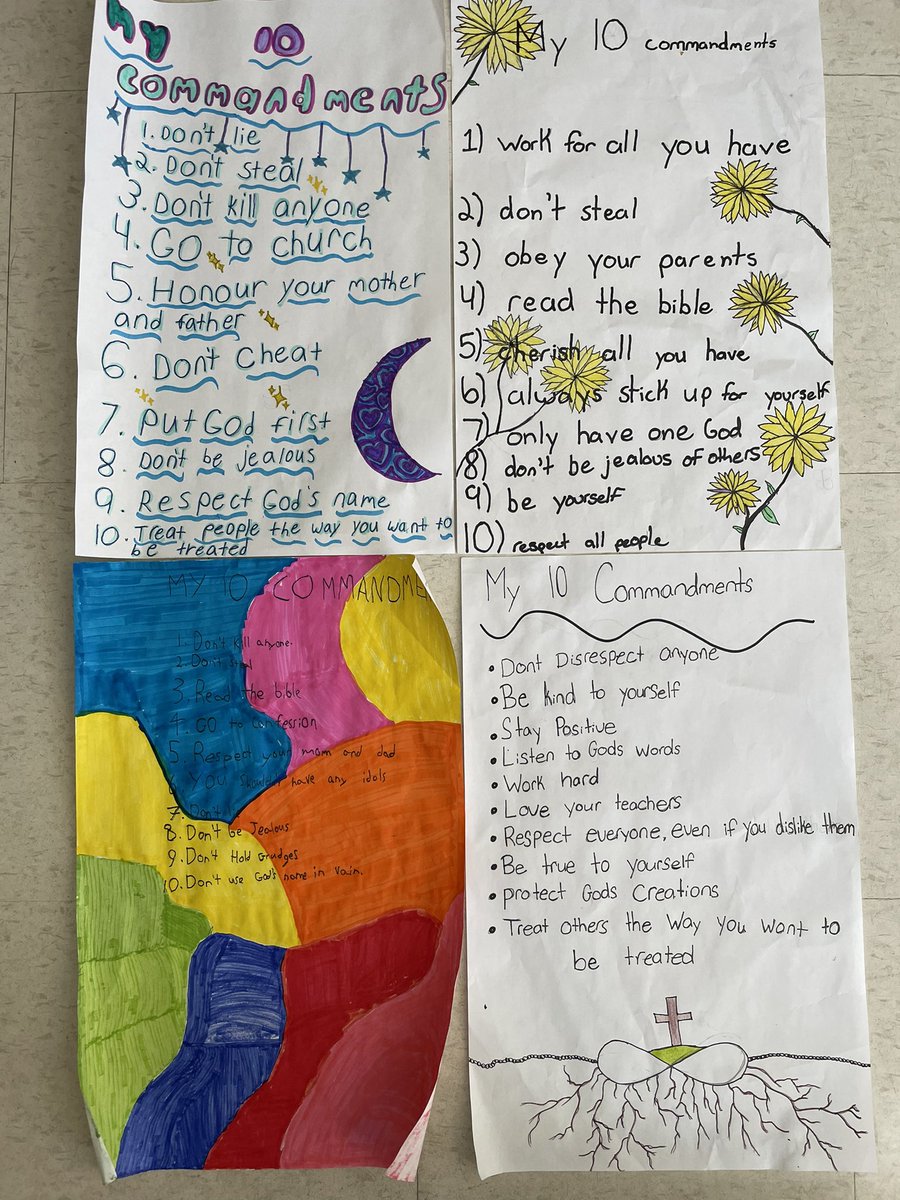 My 10
commandments
1. Don't lie
2. Don't steal
3. Don't kill anyone
4. GO to church
5. Honour your mother
and father
6. Don't cheat
7. Put God first
8. Don't be jealous
9. Respect God's name
10. Treat people the way you want to
be treated
My 10 commandments
1) work for all you have
2) don't steal
3) obey your parents
4) read the bible
5) cherish all you have
6) always stick up for yourself
7) only have one God
8) don't be jealous of others
9) be yourself
10) respect all people
MY 10 COMMANDME
1. Don't kill anyone.
2. Don't steal
3. Read the bible
4. GO to confession
5. Respect your mom and dad
6. You shouldn't have any idols
7. Don't
8. Don't be Jealous
9. Don't Hold Grudges
10. Don't use God's name in vain.
My 10 Commandments
• Dont Disrespect anyone
• Be kind to yourself
• Stay Positive
• Listen to Gods words
• Work hard
• Love your teachers
• Respect everyone, even if you dislike them
• Be true to yourself
• protect Gods Creations
• Treat others the Way you want to
be treated